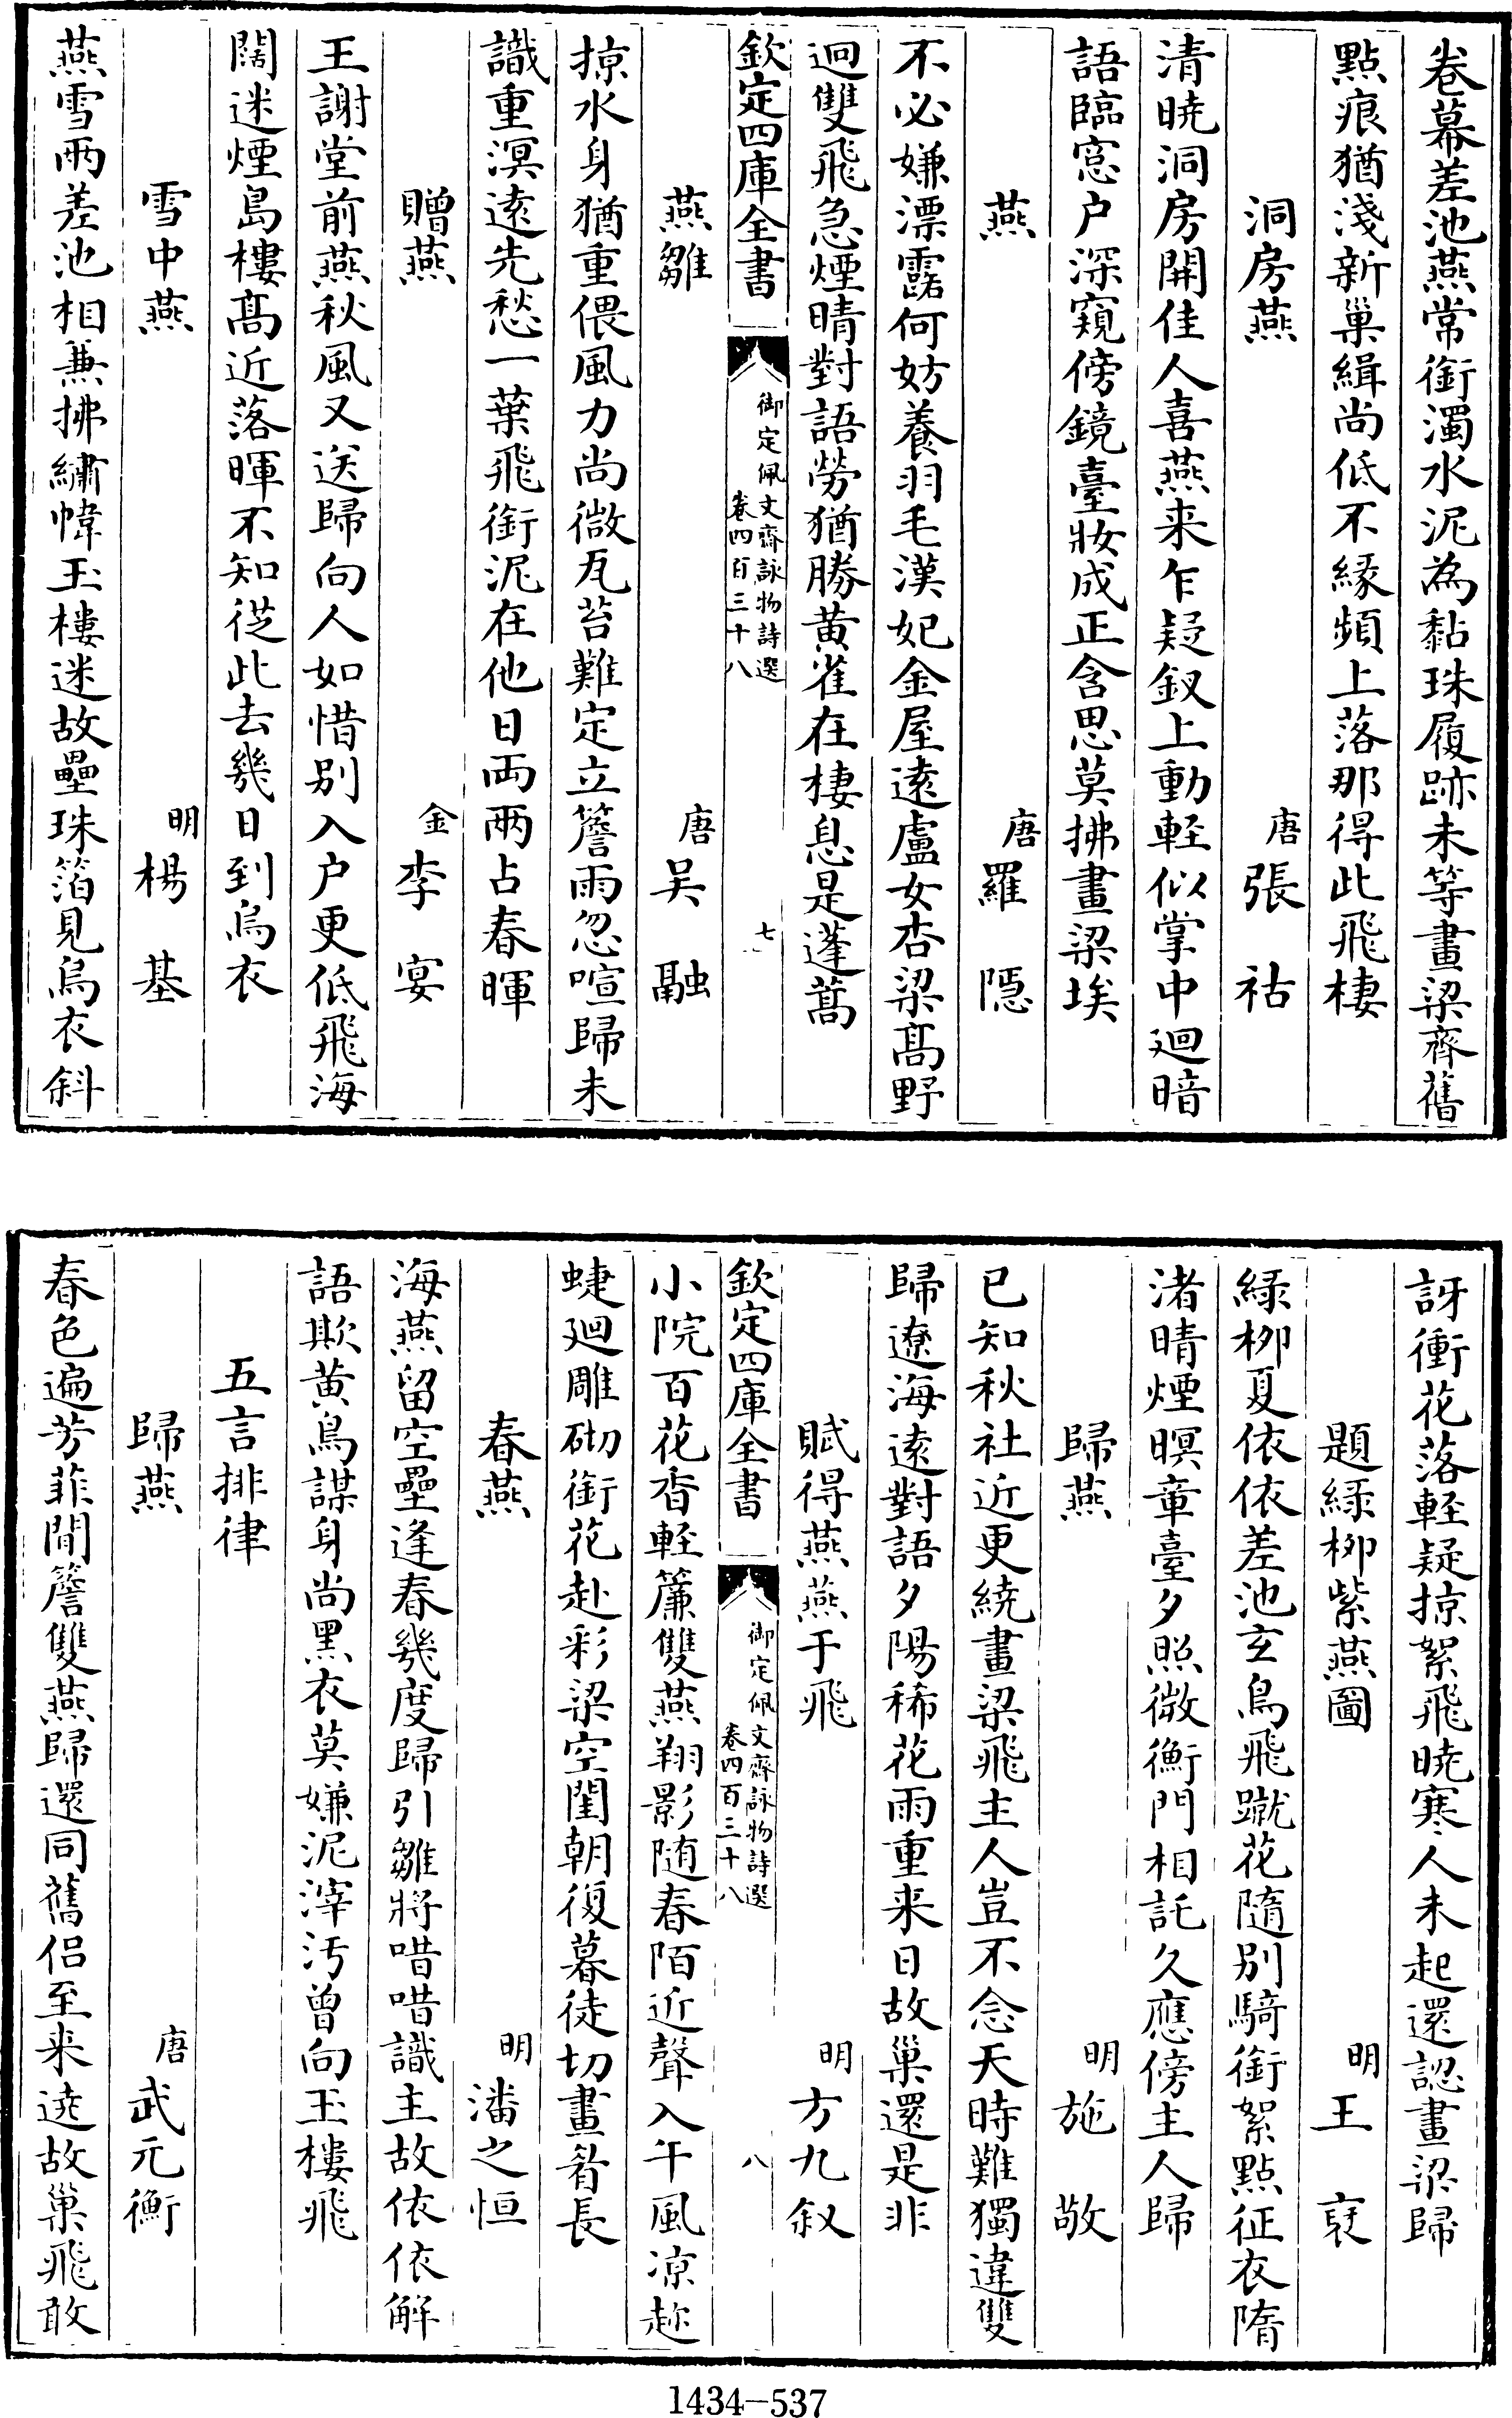 卷幕差池燕常銜濁水泥為黏珠履跡未等畫梁齊舊
點痕猶淺新巢緝尚低不緣頻上落那得此飛棲
洞房燕 唐 張祜
清曉洞房開佳人喜燕来乍疑釵上動輕似掌中廻暗
語臨窓户深窺傍鏡臺妝成正含思莫拂畫梁埃
燕 唐 羅隱
不必嫌漂露何妨養羽毛漢妃金屋遠盧女杏梁髙野
迥雙飛急煙晴對語勞猶勝黄雀在棲息是蓬蒿
欽定四庫全書 御定佩文齋詠物詩選 卷四百三十八 七
燕雛 唐 吴融
掠水身猶重偎風力尚微瓦苔難定立簷雨忽喧歸未
識重溟遠先愁一葉飛銜泥在他日両兩占春暉
贈燕 金 李宴
王謝堂前燕秋風又送歸向人如惜别入户更低飛海
闊迷煙島樓髙近落暉不知從此去幾日到烏衣
雪中燕 明 楊基
燕雪兩差池相兼拂繡幃玉樓迷故壘珠箔見烏衣斜
訝衝花落輕疑掠絮飛曉寒人未起還認畫梁歸
題緑栁紫燕圖 明 王裒
緑栁夏依依差池玄鳥飛蹴花隨别騎銜絮點征衣隋
渚晴煙暝章臺夕照微衡門相託久應傍主人歸
歸燕 明 施敬
已知秋社近更繞畫梁飛主人豈不念天時難獨違雙
歸遼海遠對語夕陽稀花雨重来日故巢還是非
賦得燕燕于飛 明 方九叙
欽定四庫全書 御定佩文齋詠物詩選 卷四百三十八 八
小院百花香輕簾雙燕翔影随春陌近聲入午風凉趂
蜨廻雕砌銜花赴彩梁空閨朝復暮徒切畫眉長
春燕 明 潘之恒
海燕留空壘逢春幾度歸引雛將唶唶識主故依依解
語欺黄鳥謀身尚黑衣莫嫌泥滓汚曾向玉樓飛
五言排律
歸燕 唐 武元衡
春色遍芳菲閒簷雙燕歸還同舊侣至来遶故巢飛敢
1434-537